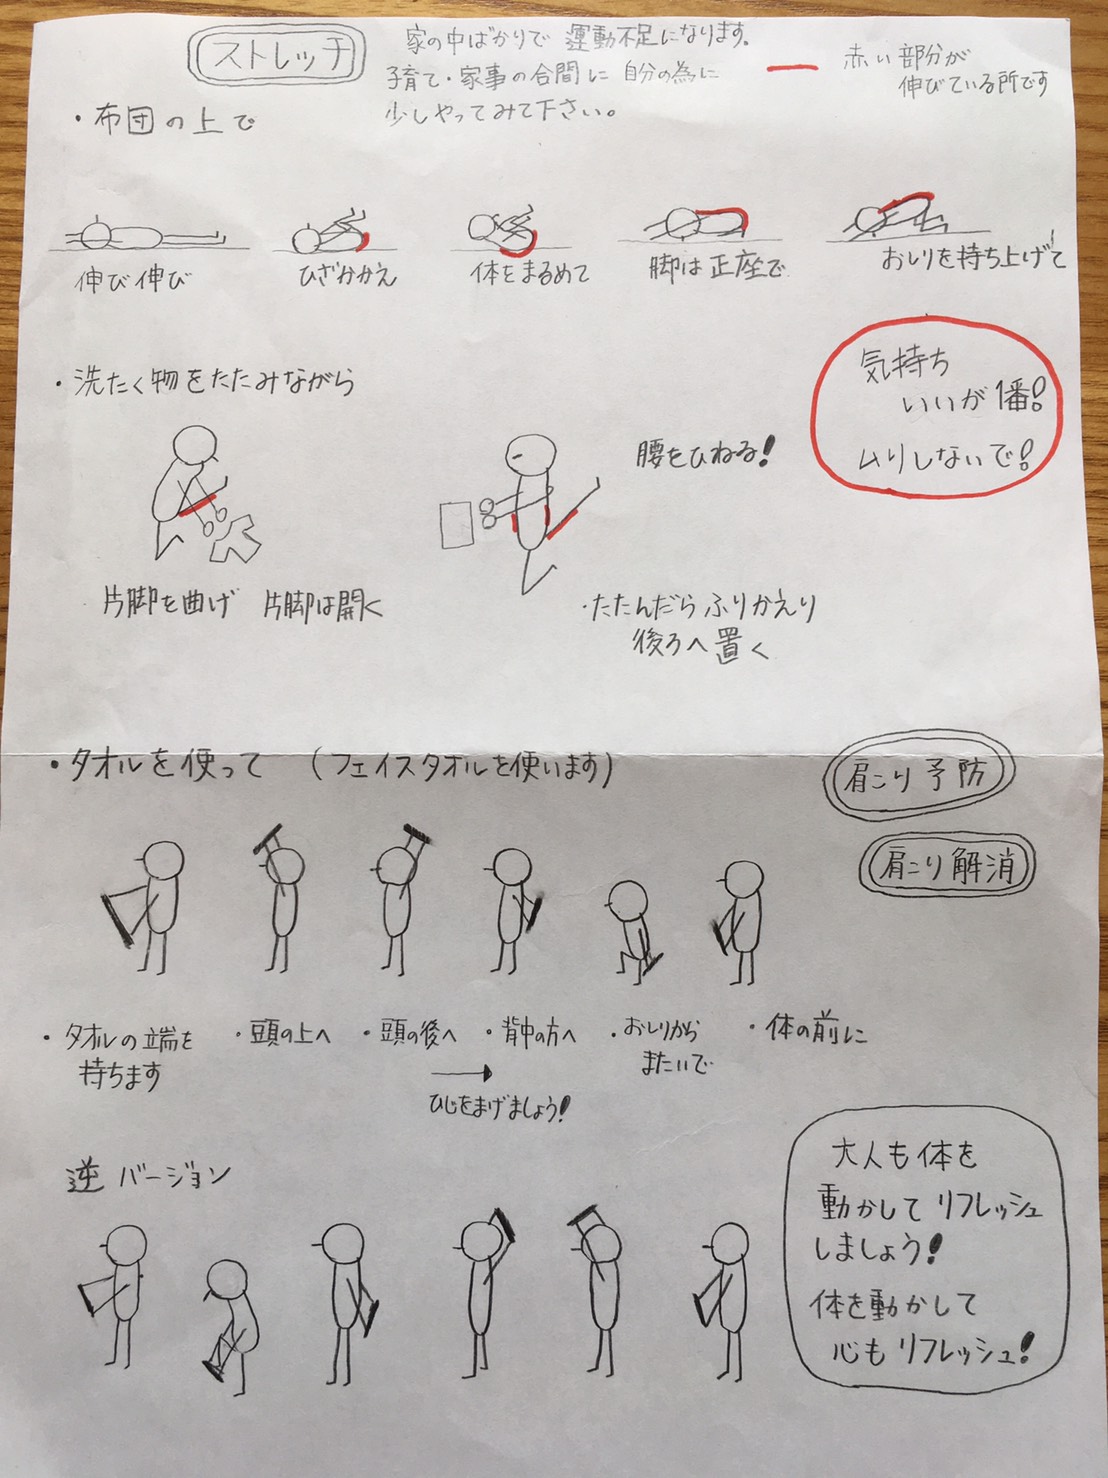 ストレッチ
家の中ばかりで 運動不足になります。
子育て・家事の合間に 自分の為に
少しやってみて下さい。
赤い部分が
伸びている所です
・布団の上で
伸び伸び
ひざかかえ
体をまるめて
脚は正座で
おしりを持ち上げて
気持ち
いいが1番!
ムリしないで!
・洗たく物をたたみながら
腰をひねる!
片脚を曲げ 片脚は開く
・たたんだらふりかえり
後ろへ置く
・タオルを使って (フェイスタオルを使います)
肩こり予防
肩こり解消
・タオルの端を
持ちます
・頭の上へ
・頭の後へ
・背中の方へ
・おしりから
またいで
・体の前に
ひじをまげましょう!
逆バージョン
大人も体を
動かしてリフレッシュ
しましょう!
体を動かして
心もリフレッシュ!